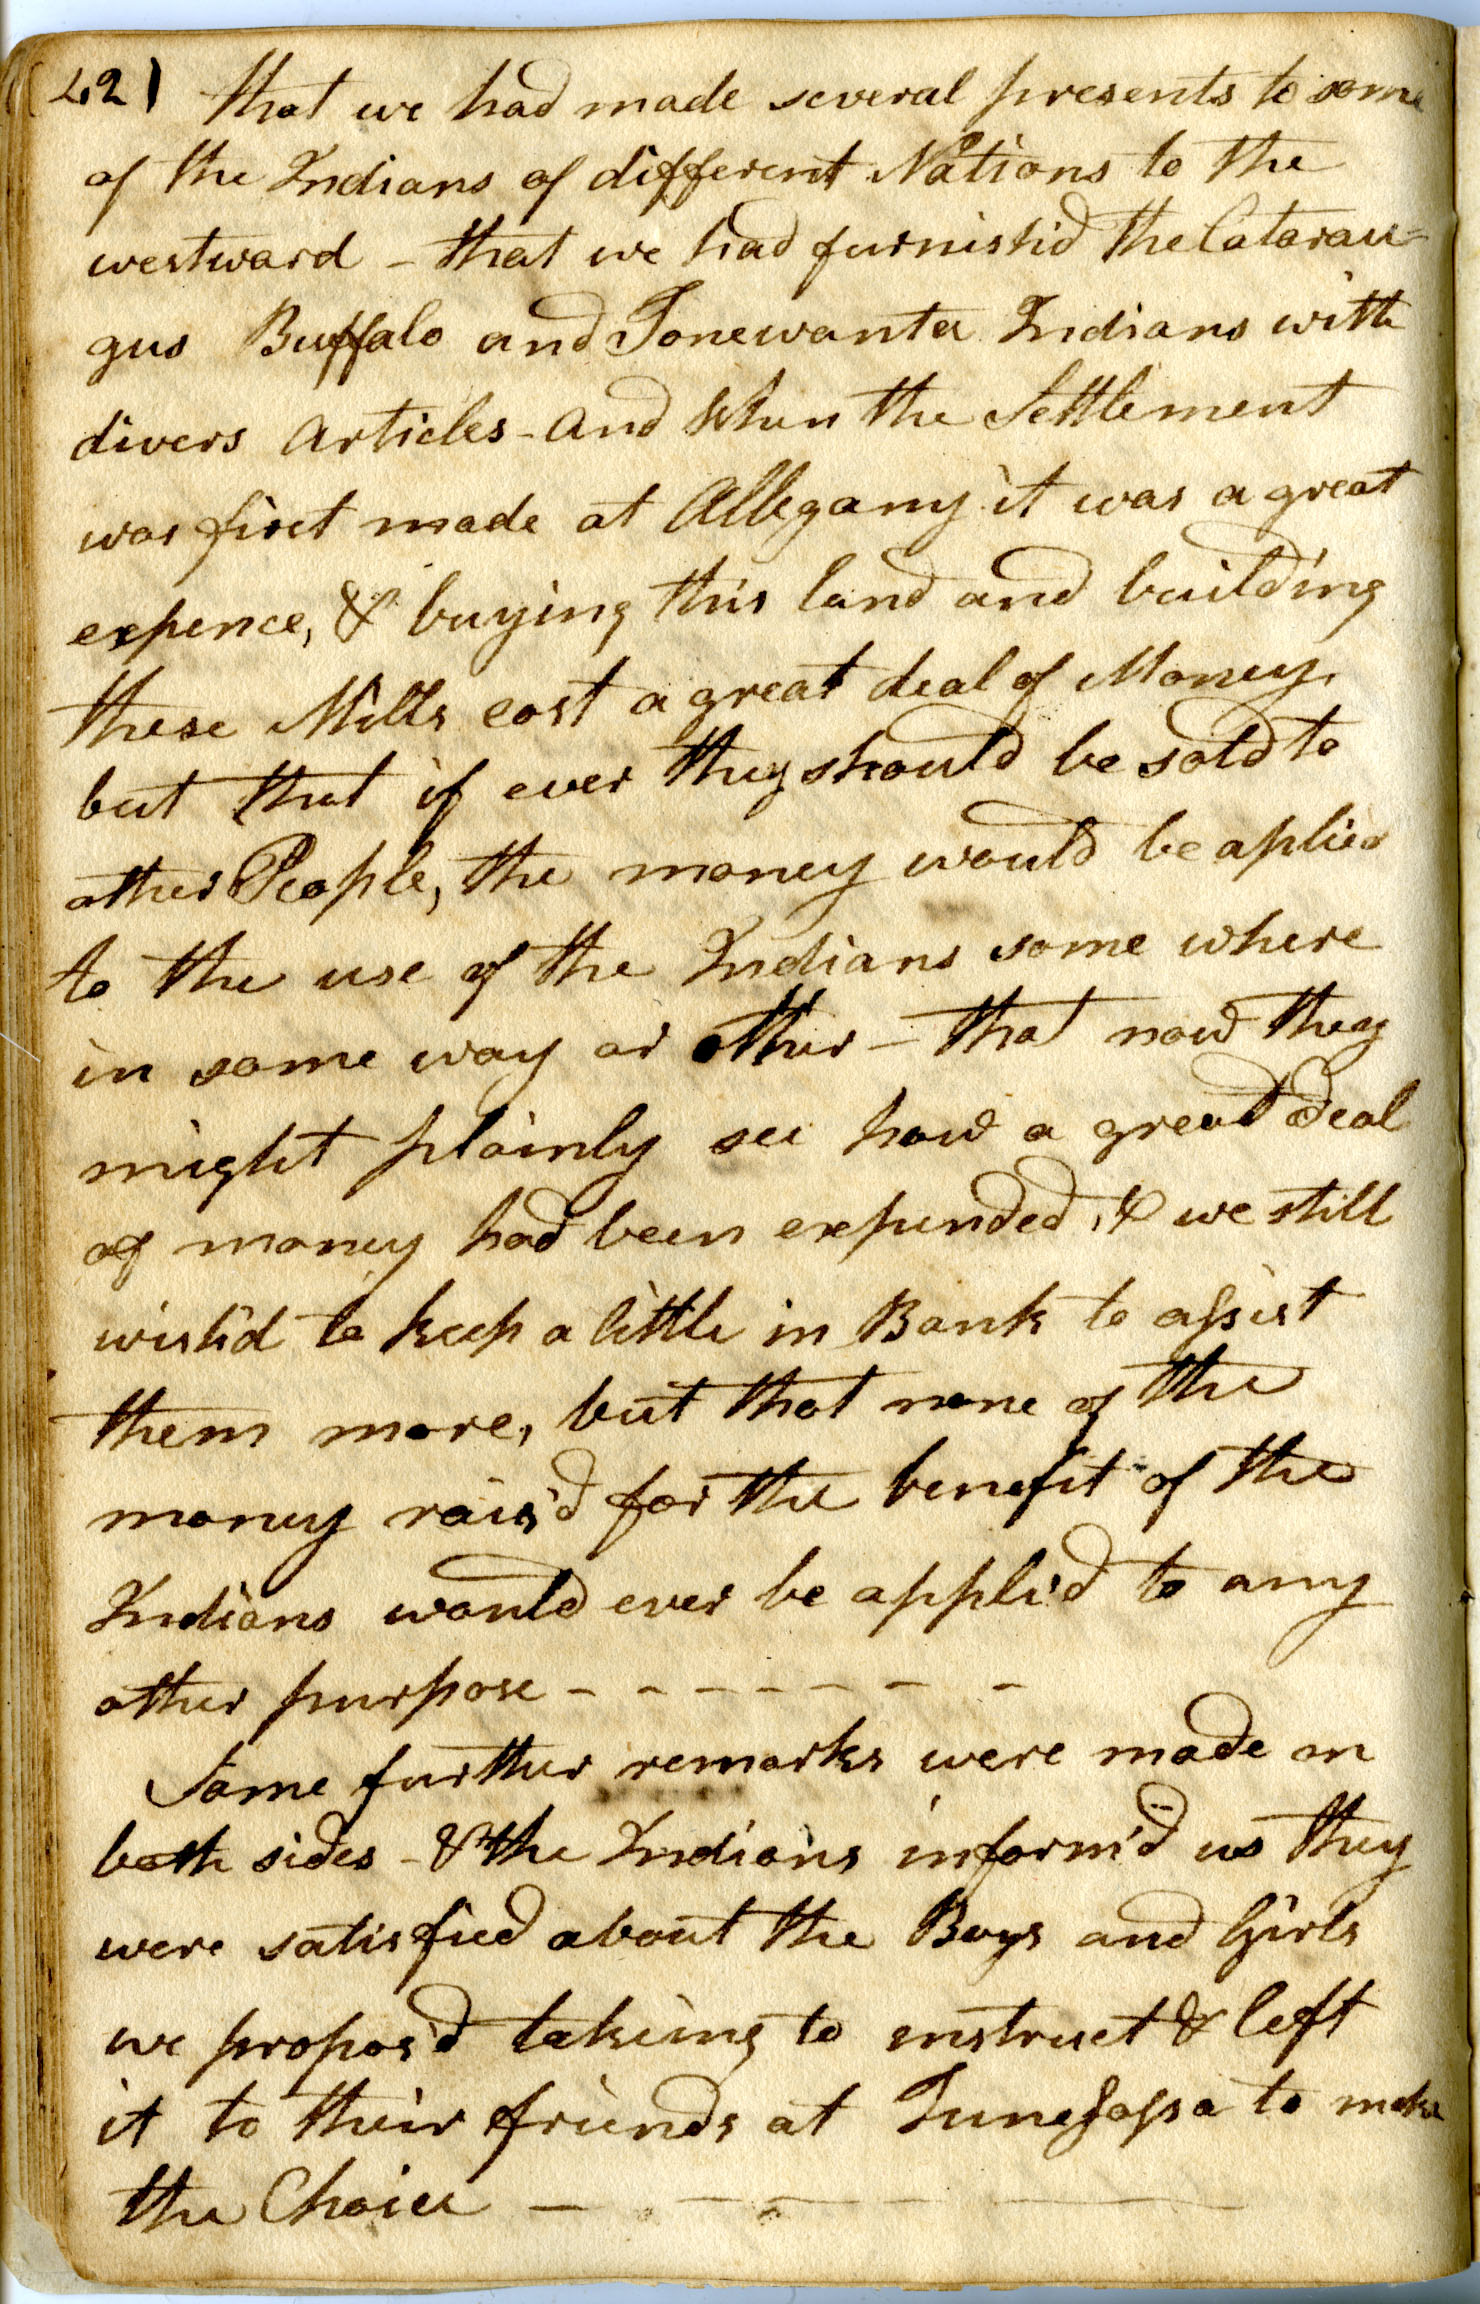 42) that we had made several presents to some
of the Indians of different Nations to the
westward – that we had furnishid the Catarau=
gus Buffalo and Tonewanta Indians with
divers Articles – and when the Settlement
was first made at Allegany it was a great
expence, & buying this land and building
these Mills cost a great deal of Money,
but that if ever they should be sold to
other People, the money would be aplied
to the use of the Indians some where
in some way or other – that now they
might plainly see how a great deal
of money had been expended, & we still
wish'd to keep a little in Bank to assist
them more, but that none of the
money rais'd for the benefit of the
Indians would ever be appli'd to any
other purpose – – – – – – – –
Some further remarks were made on
both sides – & the Indians inform'd us they
were satisfied about the Boys and Girls
we propos'd takeing to instruct & left
it to their friends at Tunesassa to make
the Choice – – – – –